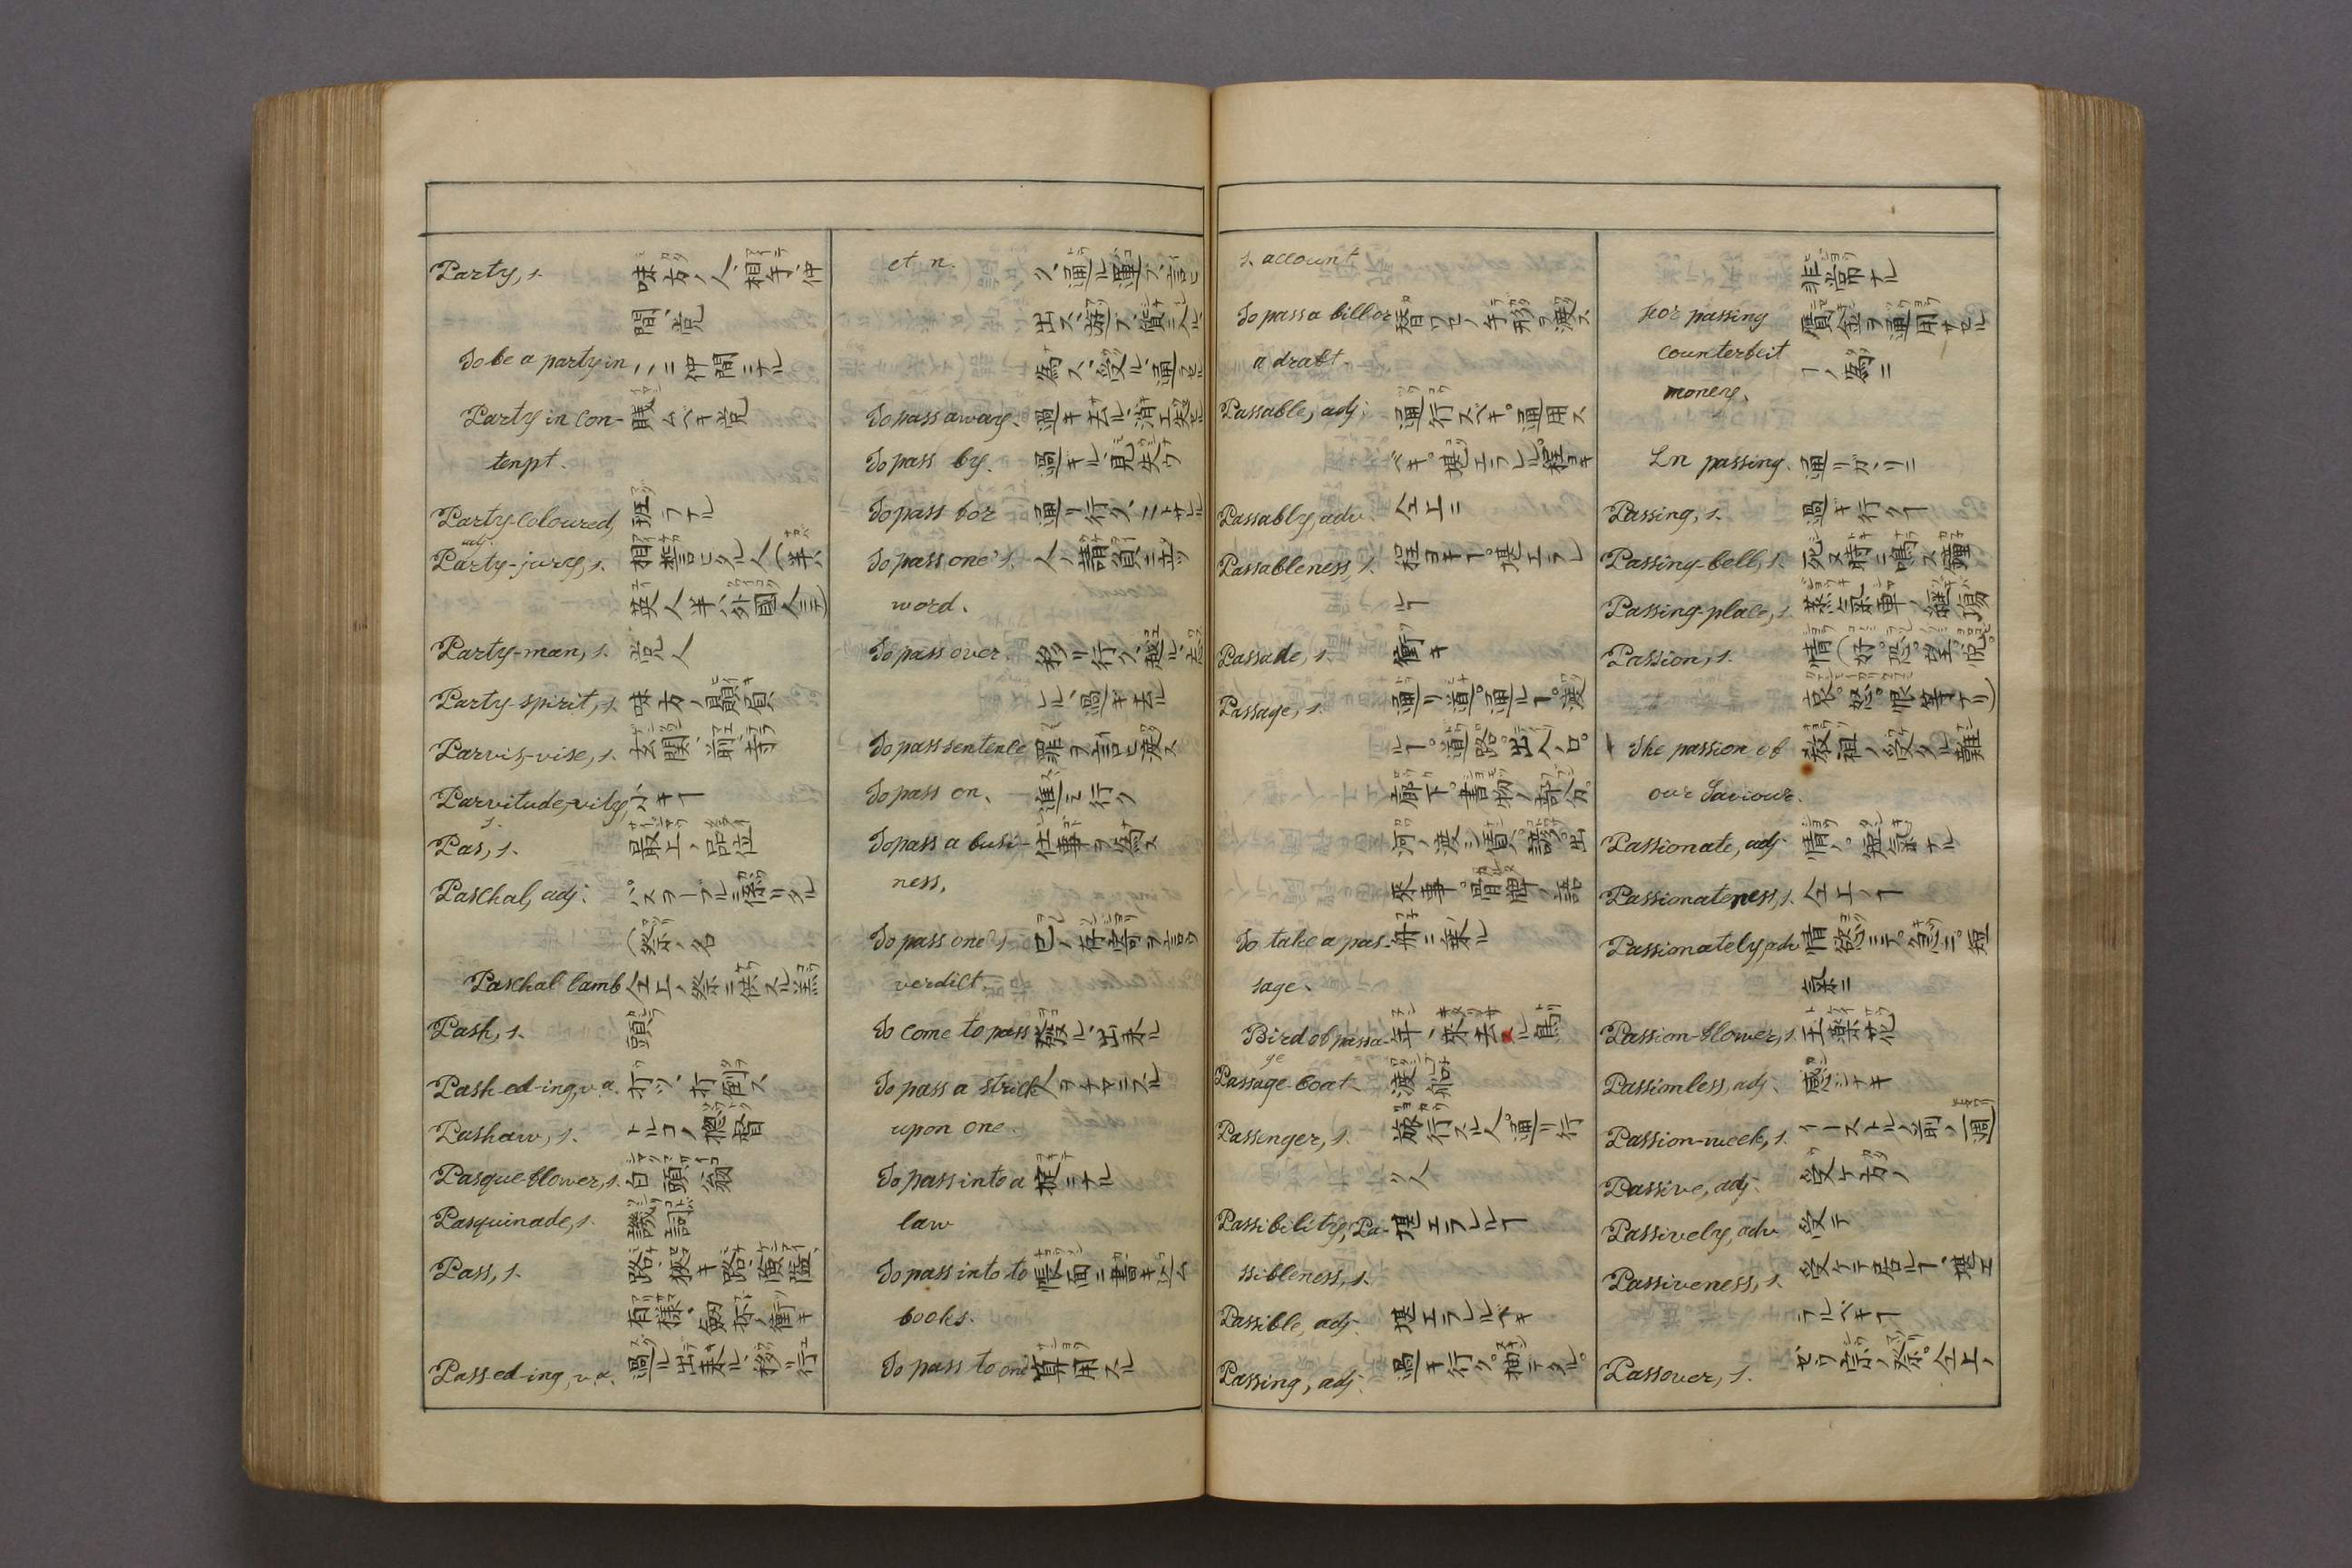 Party, s. 味方ノ人、相手、仲
間、党
To be a party in 、、ニ仲間ニナル
Party in con- 賎ムベキ党
tenpt.
Party-coloured, 班ラナル
adj.
Party-jury, s. 相誓言セラルヽ人(半ハ
英人半ハ外國人ニテ)
Party-man, s. 党人
Party-spirit, s. 味方ノ贔負
Parvis,-vise, s. 玄関、前寺
Parvitude,-vity, 小キヿ
s.
Pas, s. 最上ノ品位
Paschal, adj. パスヲーブルニ係リタル
(祭ノ名
Paschal lamb 仝上ノ祭ニ供スル羔
Pash, s. 頭
Pash-ed-ing, v.a. 打ツ、打倒ス
Pashaw, s. トルコノ總督
Pasque-flower, s. 白頭翁
Pasquinade, s. 譏詞
Pass, s. 路、狭キ路、險隘、
有様、劔抔ノ衝キ
Pass-ed-ing, v.a. 過ル、出来ル、移リ行
et n. ク、通ル、運ブ、言ヒ
出ス、遊ブ、償ニ入ル、
為ス、受ル、通ラセル
To pass away. 過キ去ル、消エ失セル
To pass by. 過キル、見失ウ
To pass for 通リ行ク、ニトサレル
To pass one's. 人ノ請負ニ立ツ
word.
To pass over. 移リ行ク、越ル、忘
レル、過ギ去ル
To pass sentence 罪ヲ言ヒ渡ス
To pass on. 進ミ行ク
To pass a busi- 仕事ヲ為ス
ness.
To pass one's 已ノ存寄ヲ言ウ
verdict.
To come to pass 発ル、出来ル
To pass a strick 人ヲナヤマスル
upon one.
To pass into a 掟ニナル
law
To pass into to 帳面ニ書キ込ム
books.
To pass to one' 算用スル
s. account
To pass a bill or 替ワセノ手形ヲ渡ス
a draft.
Passable, adj. 通行スベキ。通用ス
ベキ。堪エラレル。程ヨキ
Passably, adv. 仝上ニ
Passableness, s. 程ヨキヿ。堪エラレ
ルヿ
Passade, s. 衝キ
Passage, s. 通リ道。通ルヿ。渡
ルヿ。道路。出入ノ口。
廊下。書物ノ部分。
河ノ渡シ債。譯。出
来事。骨牌ノ語
To take a pas- 舟ニ乗ル
sage.
Bird of passa- 年々来去スル鳥
ge
Passage-boat. 渡船
Passenger, s. 旅行スル人。通リ行
ク人
Passibility, Pa- 堪エラレルヿ
ssibleness, s.
Passible, adj. 堪エラレルベキ
Passing, adj. 過キ行ク。抽テタル。
非常ナル
For passing 贋金ヲ通用サセル
counterfeit ヿノ為ニ
money.
In passing. 通リガヽリニ
Passing, s. 過キ行クヿ
Passing-bell, s. 死ヌ時ニ鳴ス鐘
Passing-place, s. 蒸氣車ノ避場
Passion, s. 情(好。恐。望。悦。
哀。怒。恨等ナリ)
The passion of 教祖ノ受クル難
our Saviour.
Passionate, adj. 情ノ。短氣ナル
Passionateness, s. 仝上ノヿ
Passionately, adv. 情慾ニテ。急ニ。短
氣ニ
Passion-flower, s. 玉蘂花
Passionless, adj. 感シナキ
Passion-week, s. イーストルノ前ノ一週
Passive, adj. 受ケ方ノ
Passively, adv. 受テ
Passiveness, s. 受ケテ居ルヿ、堪エ
ラルベキヿ
Passover, s. ゼウ宗ノ祭。仝上ノ